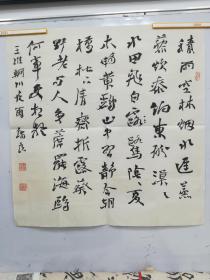 積雨空林烟火遲蒸
藜炊黍餉東菑漠漠
水田飛白鷺陰陰夏
木囀黄鸝山中習静觀朝
槿松下清齋折露葵
野老与人爭席罷海鷗
何事更相疑
王維輞川